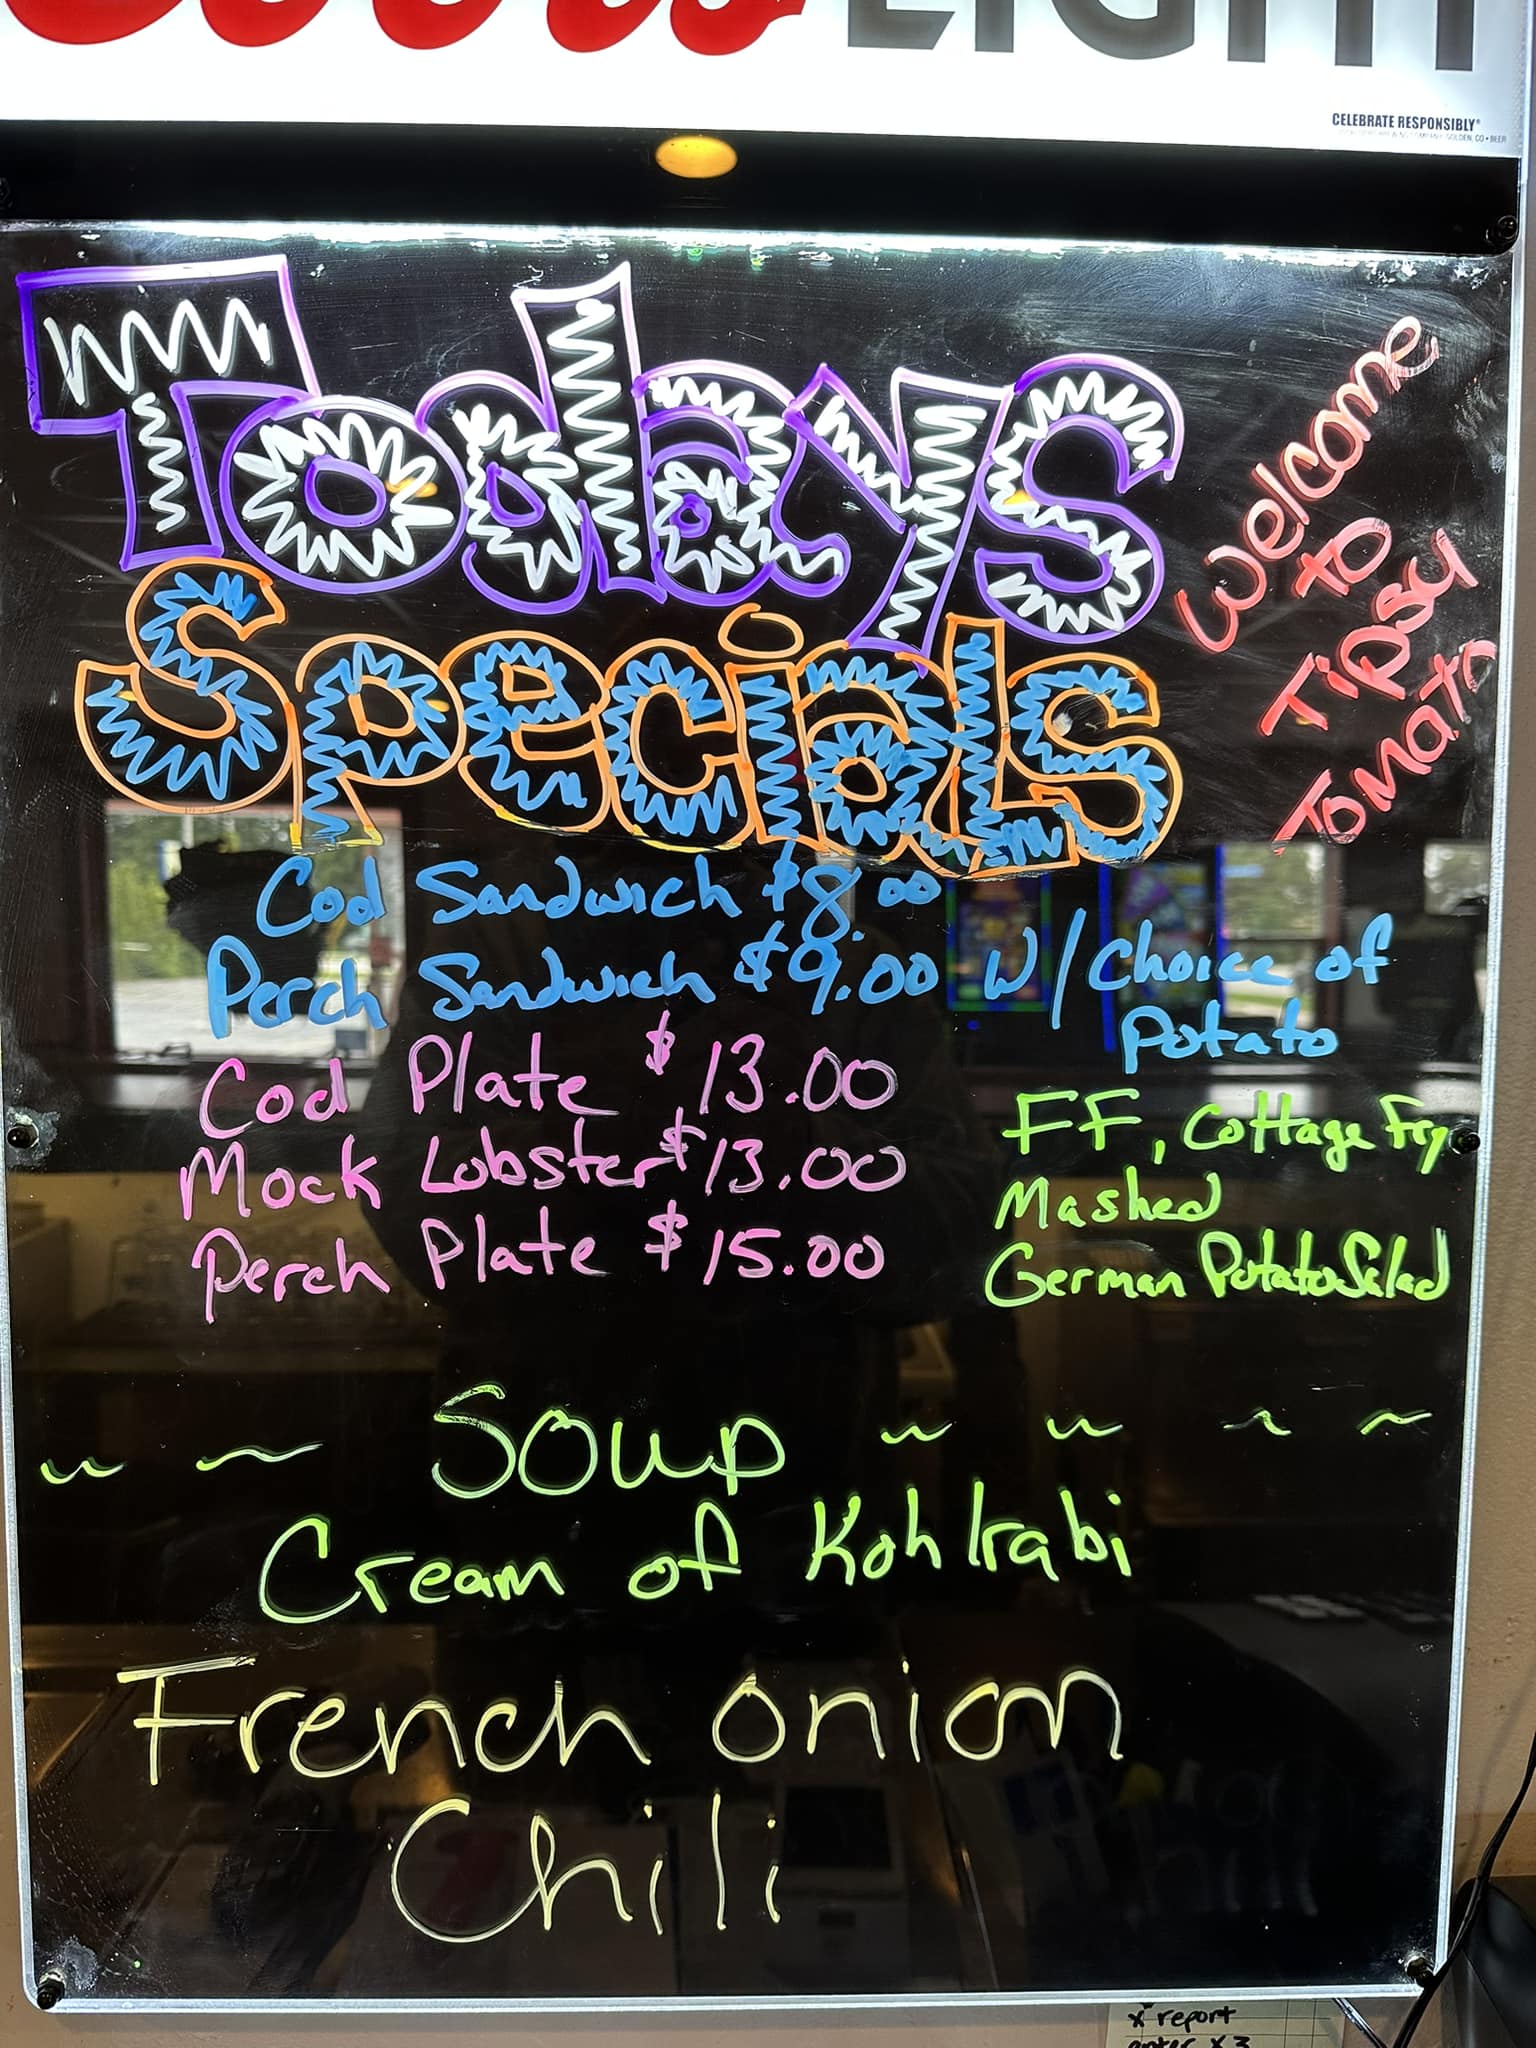 Coors LIGHT
CELEBRATE RESPONSIBLY®
Todays
Specials
Welcome
to
Tipsy
Tomato
Cod Sandwich $8.00
Perch Sandwich $9.00 w/ Choice of
Potato
Cod Plate $13.00
Mock Lobster $13.00
Perch Plate $15.00
FF, Cottage Fry
Mashed
German Potato Salad
~ ~ Soup ~ ~ ~ ~
Cream of Kohlrabi
French Onion
Chili
x report
enter x 3